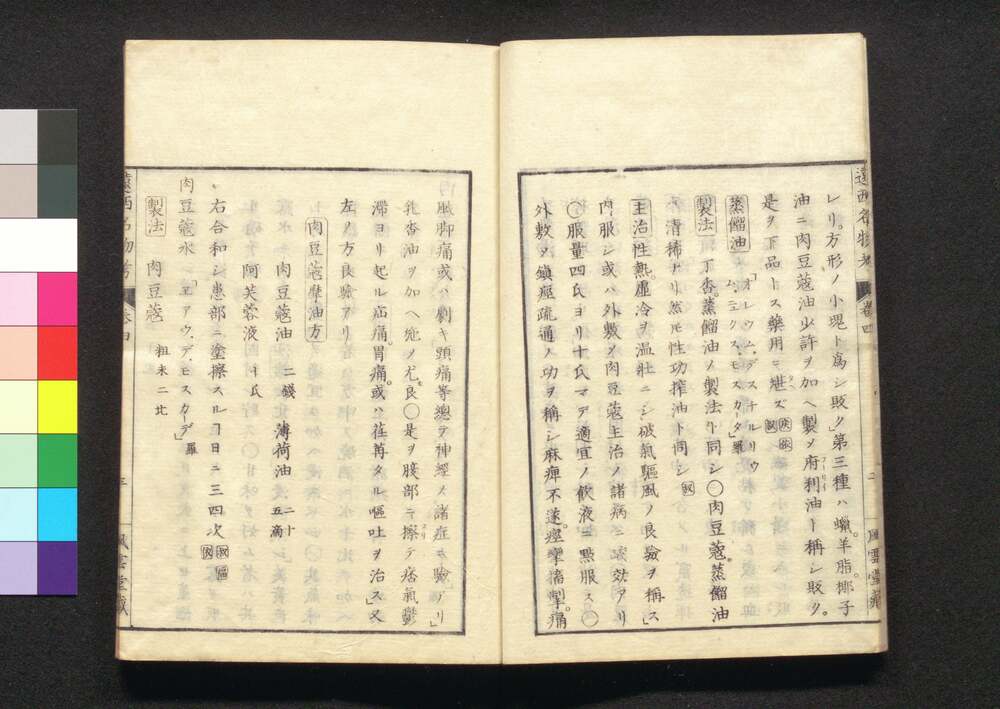 遠西名物考 卷四
レリ。方形ノ小塊ト為シ販ク」第三種ハ蝋。羊脂。椰子
油ニ肉豆蔻油少許ヲ加ヘ製メ府利油ト稱シ販ク。
是ヲ下品トス藥用ニ堪ズ
蒸餾油 「オレウム、デスチルリウ
ム、エクス、モスカータ」羅
製法 丁香。蒸餾油ノ製法ト同シ〇肉豆蔻。蒸餾油
ハ清稀ナリ然モ性功搾油ト同シ
主治 性熱。虚冷ヲ温壮ニシ破氣驅風ノ良驗ヲ稱ス」
内服シ或ハ外敷メ肉豆蔻主治ノ諸病ニ殊効アリ
〇服量四氐ヨリ十氐マデ適宜ノ飲液ニ點服ス〇
外敷メ鎮痙疏通ノ功ヲ稱シ麻痺不遂。痙攣搐掣。痛
風雲堂藏
風脚痛或ハ劇キ頭痛等總テ神經ノ諸症ニ驗アリ」
乳香油ヲ加ヘ兠ノ尤良〇是ヲ腹部ニ擦テ痞氣鬱
滞ヨリ起ル疝痛。胃痛。或ハ荏苒タル嘔吐ヲ治ス」又
左ノ方良驗アリ
肉豆蔻摩油方
肉豆蔻油 二錢 薄荷油 二十五滴
阿芙蓉液 十氐
右合和シ患部ニ塗擦スルヿ日ニ三四次
肉豆蔻水 「エアウ、デ、モスカーデ」羅
製法 肉豆蔻 粗末二匕
遠西名物考 卷四
風雲堂藏